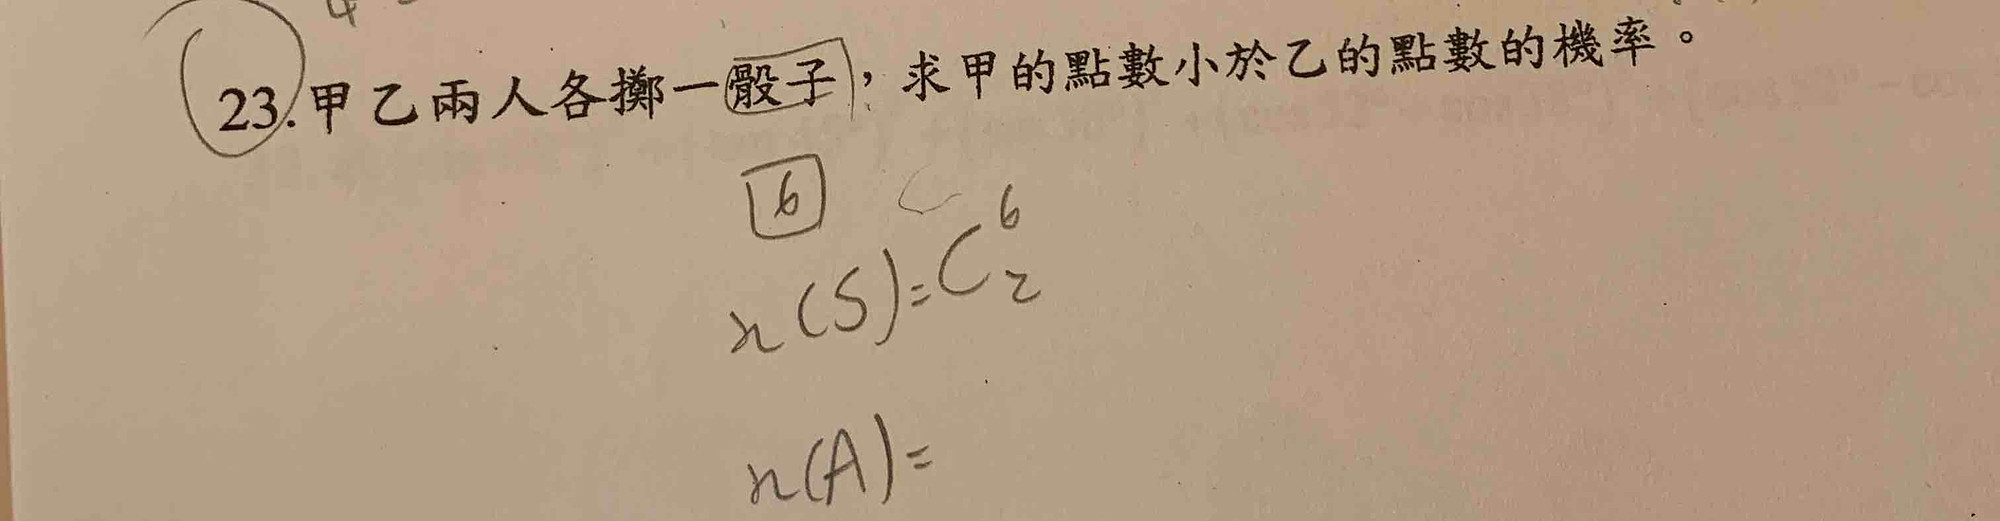 23.甲乙兩人各擲一骰子，求甲的點數小於乙的點數的機率。
6
n(S)=C⁶₂
n(A)=